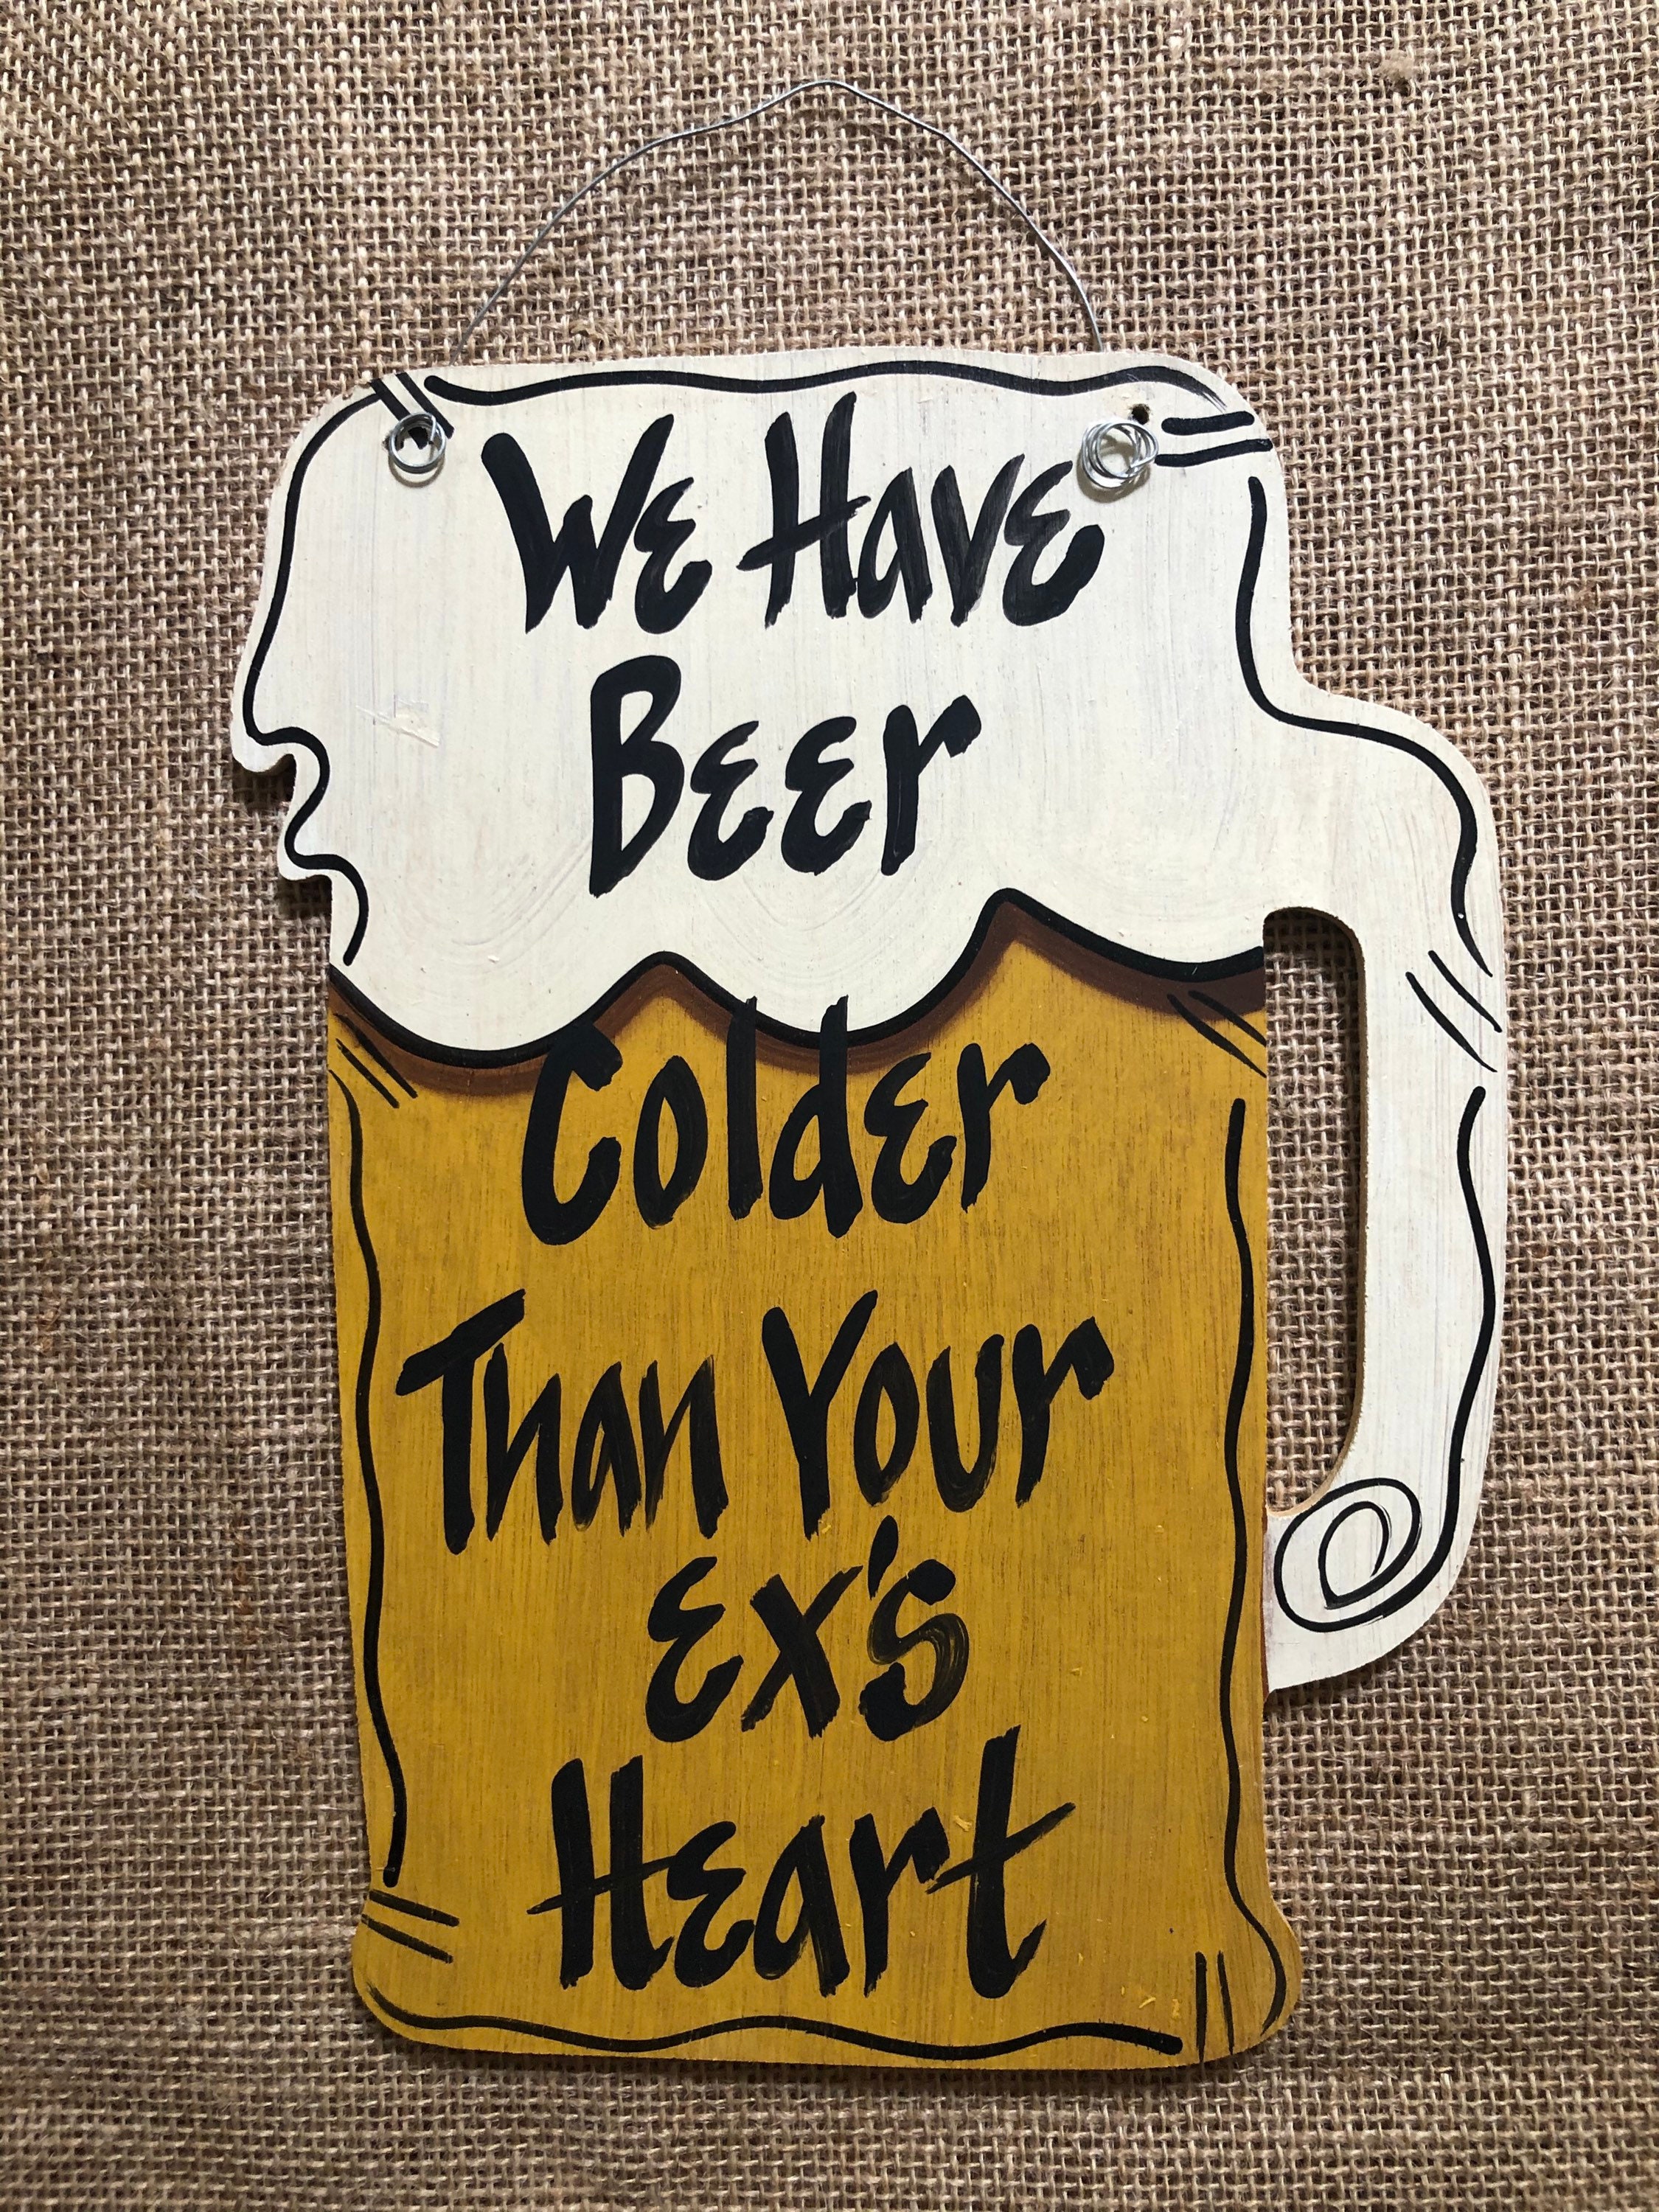 We Have
Beer
Colder
Than Your
Ex's
Heart